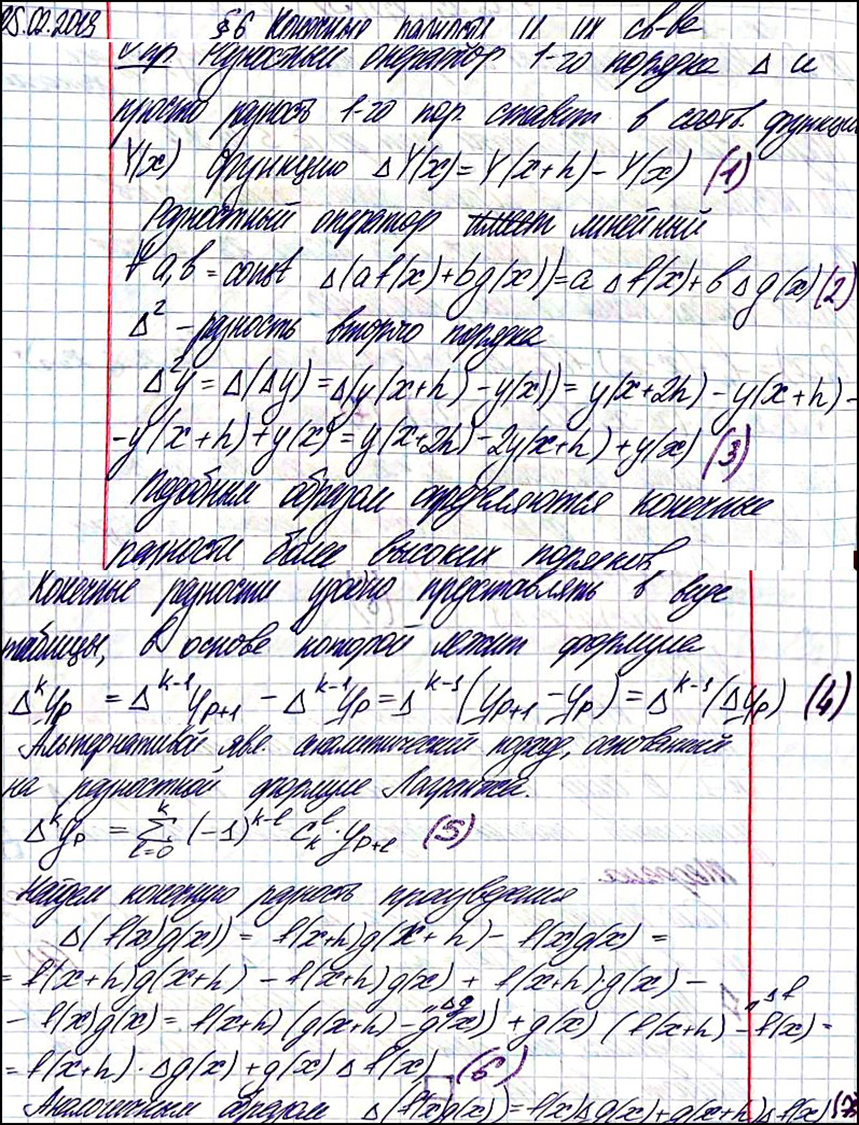 25.02.2019 §6 Конечные разности и их св-ва
Опр. Разностный оператор 1-го порядка Δ и
просто разность 1-го пор. ставит в соотв. функции
Y(x) функцию ΔY(x) = Y(x+h) - Y(x) (1)
Разностный оператор линейный
∀ a, b = const Δ(af(x)+bg(x)) = a Δf(x) + b Δg(x) (2)
Δ² - разность второго порядка
Δ²y = Δ(Δy) = Δ(y(x+h) - y(x)) = y(x+2h) - y(x+h) -
- y(x+h) + y(x) = y(x+2h) - 2y(x+h) + y(x) (3)
Подобным образом определяются конечные
разности более высоких порядков
Конечные разности удобно представлять в виде
таблицы, в основе которой лежит формула
Δᵏyₚ = Δᵏ⁻¹yₚ₊₁ - Δᵏ⁻¹yₚ = Δᵏ⁻¹(yₚ₊₁ - yₚ) = Δᵏ⁻¹(Δyₚ) (4)
Альтернативой явл. аналитический подход, основанный
на разностной формуле Лагранжа.
Δᵏyₚ = Σ_{l=0}^{k} (-1)^{k-l} C_k^l · y_{p+l} (5)
Найдем конечную разность произведения
Δ(f(x)g(x)) = f(x+h)g(x+h) - f(x)g(x) =
= f(x+h)g(x+h) - f(x+h)g(x) + f(x+h)g(x) -
"Δg "Δf
- f(x)g(x) = f(x+h)(g(x+h) - g(x)) + g(x)(f(x+h) - f(x) =
= f(x+h) · Δg(x) + g(x) Δf(x) (6)
Аналогичным образом Δ(f(x)g(x)) = f(x)Δg(x) + g(x+h)Δf(x) (7)